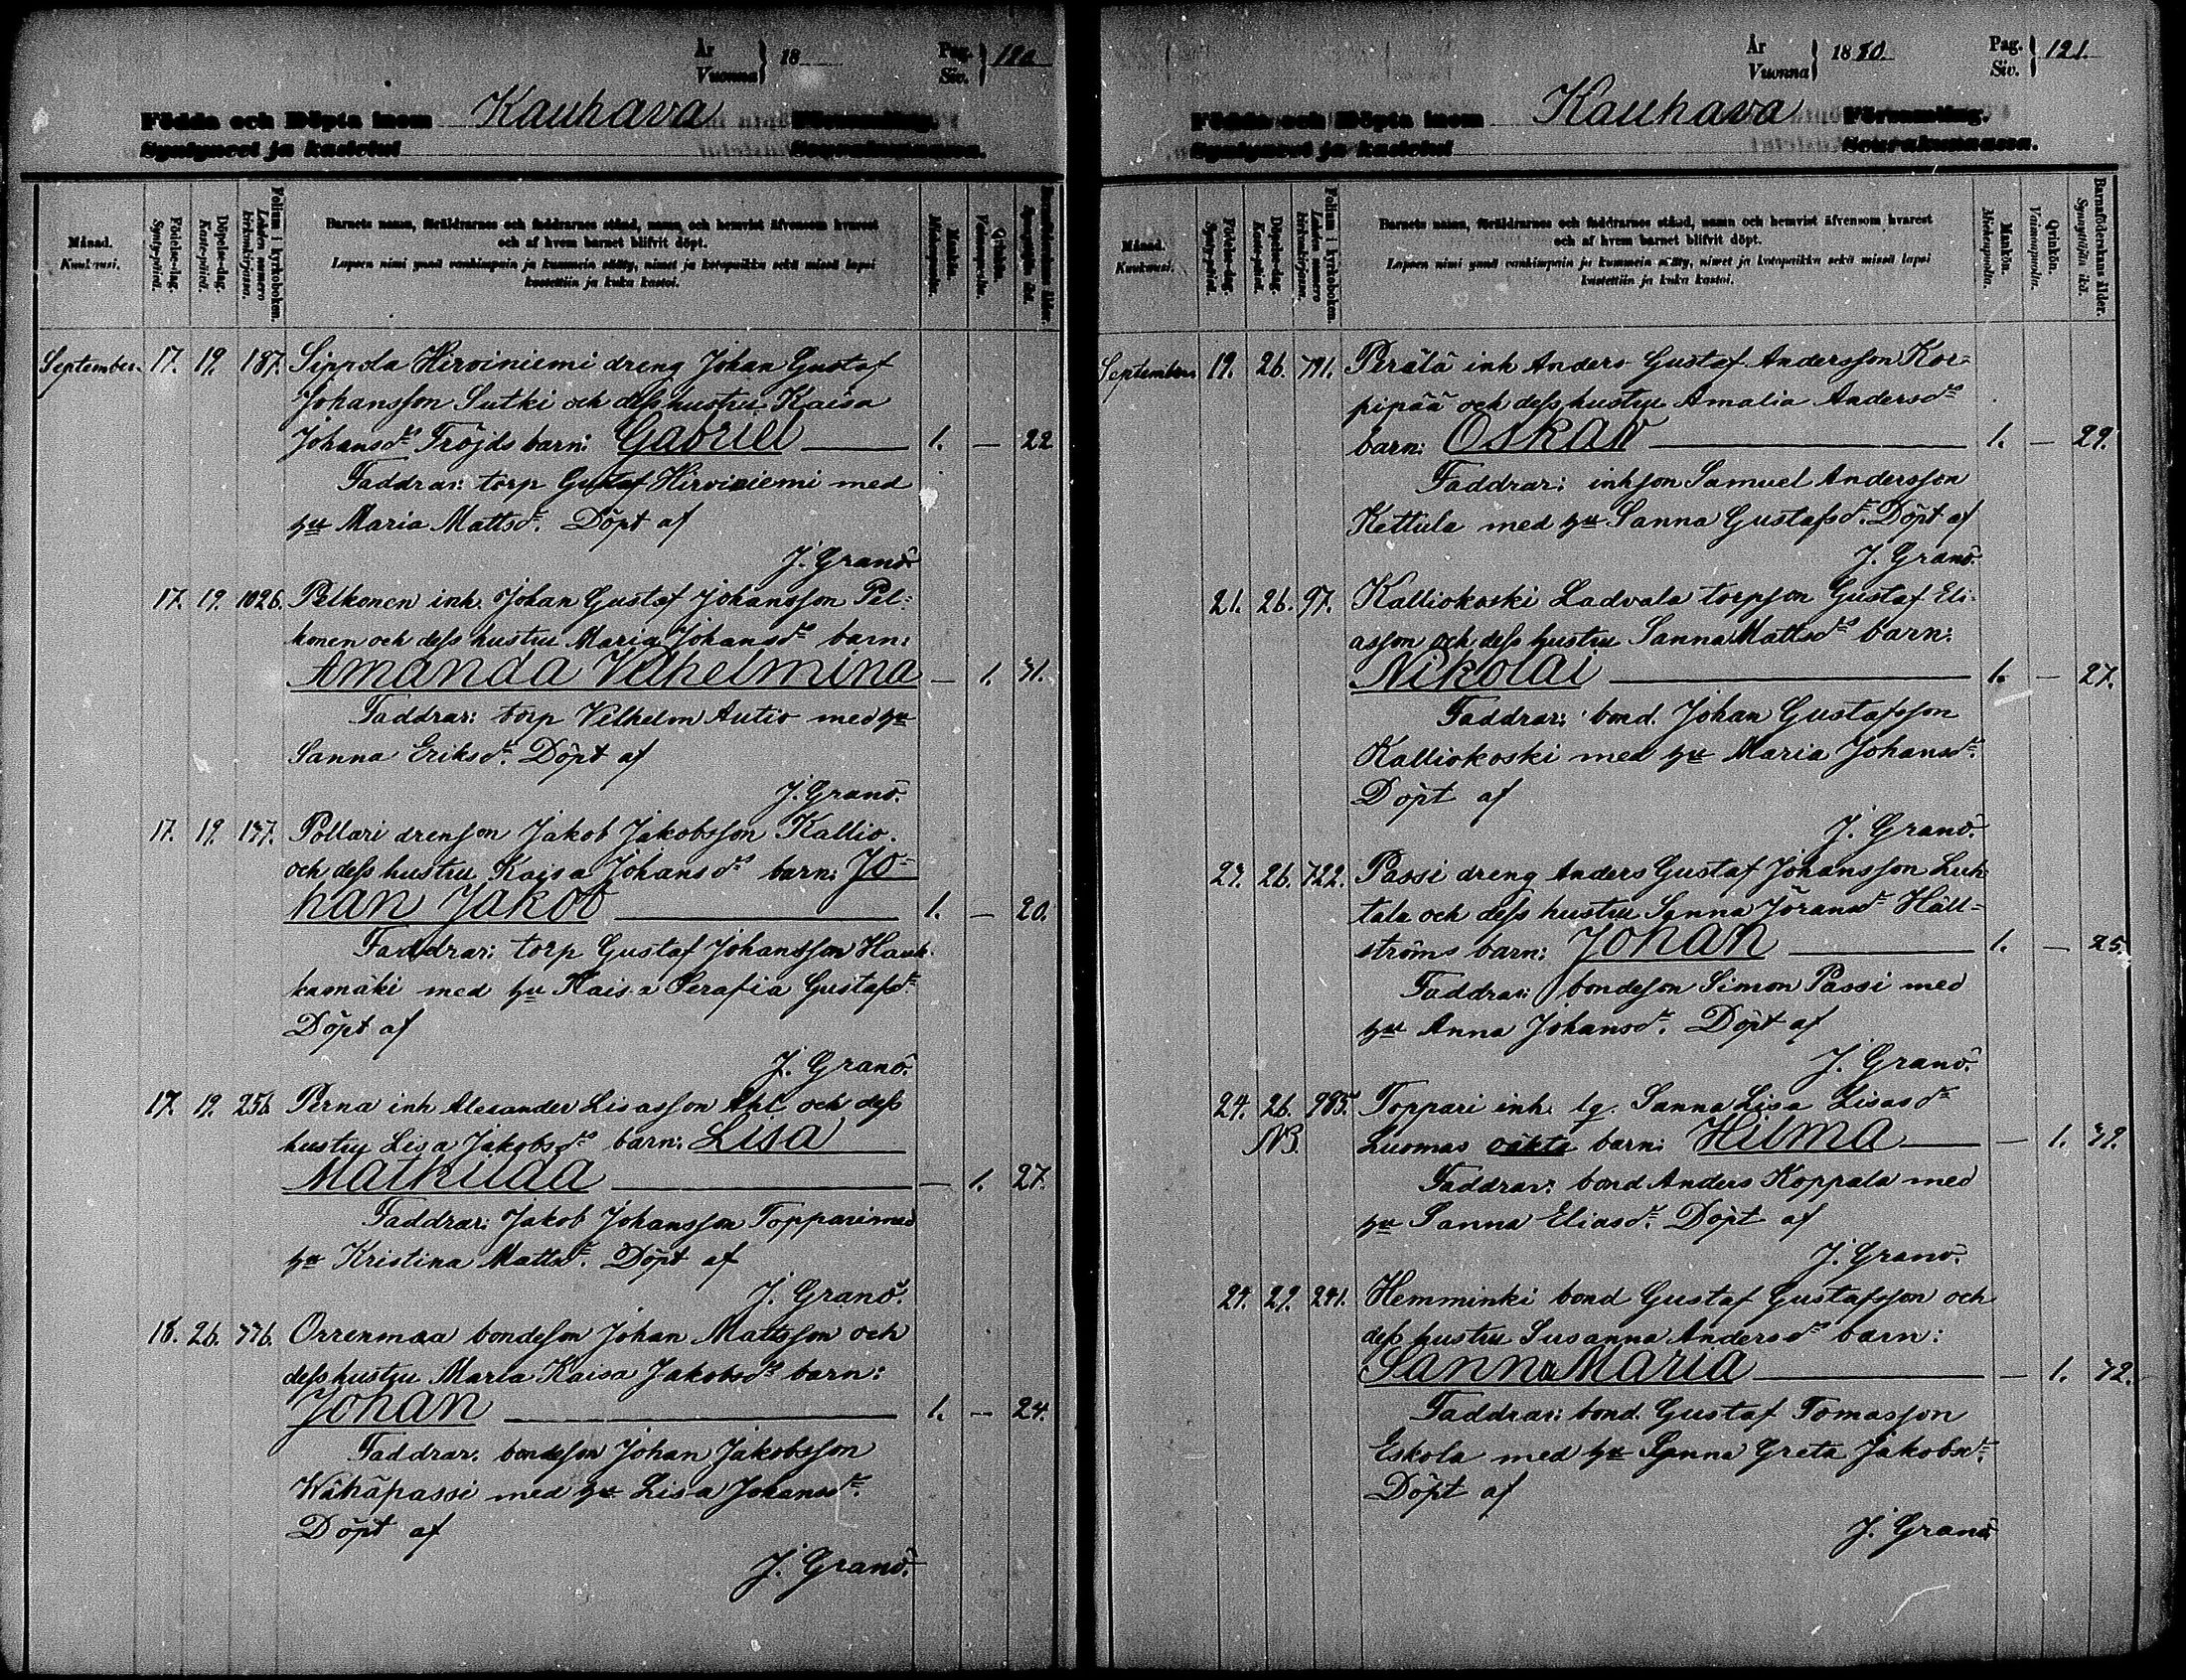 År
Vuonna } 18
Pag.
Siv. } 120
Födda och Döpta inom Kauhava Församling.
Syntyneet ja kastetut Seurakunnassa.
Månad.
Kuukausi.
Födelse-dag.
Synty-päivä.
Döpelse-dag.
Kaste-päivä.
Folium i kyrkobokom.
Lehden numero kirkonkirjassa.
Barnets namn, föräldrarnes och faddrarnes stånd, namn och hemvist äfvensom hvarest
och af hvem barnet blifvit döpt.
Lapsen nimi ynnä vanhimpain ja kummein sääty, nimet ja kotopaikka sekä missä lapsi
kastettiin ja kuka kastoi.
Mankön.
Miehenpuolia.
Qvinkön.
Vaimonpuolia.
Barnaföderskans ålder.
Synnyttäjän ikä.
September. 17. 19. 187. Sippola Hirviniemi dreng Johan Gustaf
Johansson Sutki och dess hustru Kaisa
Johansd:s Tröjds barn: Gabriel 1. — 22
Faddrar: torp Gustaf Hirviniemi med
hu Maria Mattsd:r. Döpt af
J. Granö.
17. 19. 1026. Pelkonen inh. Johan Gustaf Johansson Pel-
konen och dess hustru Maria Johansd:s barn:
Amanda Vilhelmina — 1. 31.
Faddrar: torp Vilhelm Autio med hu
Sanna Eriksd:r. Döpt af
J. Granö.
17. 19. 147. Pollari drenson Jakob Jakobsson Kallio
och dess hustru Kaisa Johansd:s barn: Jo-
han Jakob 1. — 20.
Faddrar: torp Gustaf Johansson Hauk-
kamäki med hu Kaisa Serafia Gustafsd:r
Döpt af
J. Granö.
17. 19. 256 Perna inh Alexander Lisasson Ahl och dess
hustru Lisa Jakobsd:s barn: Lisa
Mathilda — 1. 27.
Faddrar: Jakob Johansson Toppari med
hu Kristina Mattsd:r. Döpt af
J. Granö.
18. 26. 776. Orrenmaa bondeson Johan Mattsson och
dess hustru Maria Kaisa Jakobsd:s barn:
Johan 1. — 24.
Faddrar: bondeson Johan Jakobsson
Wähäpassi med hu Lisa Johansd:r.
Döpt af
J. Granö.
År
Vuonna } 1880.
Pag.
Siv. } 121.
Födda och Döpta inom Kauhava Församling.
Syntyneet ja kastetut Seurakunnassa.
Månad.
Kuukausi.
Födelse-dag.
Synty-päivä.
Döpelse-dag.
Kaste-päivä.
Folium i kyrkobokom.
Lehden numero kirkonkirjassa.
Barnets namn, föräldrarnes och faddrarnes stånd, namn och hemvist äfvensom hvarest
och af hvem barnet blifvit döpt.
Lapsen nimi ynnä vanhimpain ja kummein sääty, nimet ja kotopaikka sekä missä lapsi
kastettiin ja kuka kastoi.
Mankön.
Miehenpuolia.
Qvinkön.
Vaimonpuolia.
Barnaföderskans ålder.
Synnyttäjän ikä.
September 19. 26. 791. Perälä inh Anders Gustaf Andersson Kor-
pipää och dess hustru Amalia Andersd:s
barn: Oskar 1. — 29.
Faddrar: inhson Samuel Andersson
Kettula med hu Sanna Gustafsd:r. Döpt af
J. Granö.
21. 26. 97. Kalliokoski Ladvala torpson Gustaf Eli-
asson och dess hustru Sanna Mattsd:s barn:
Nikolai 1. — 27.
Faddrar: bond. Johan Gustafsson
Kalliokoski med hu Maria Johansd:r.
Döpt af
J. Granö.
23. 26. 722. Passi dreng Anders Gustaf Johansson Luh-
tala och dess hustru Sanna Jöransd:r Häll-
ströms barn: Johan 1. — 25.
Faddrar: bondeson Simon Passi med
hu Anna Johansd:r. Döpt af
J. Granö.
24. 26. 985. Toppari inh. lq. Sanna Lisa Lisasd:r
NB. Luomas oäkta barn: Hilma — 1. 39.
Faddrar: bond Anders Koppala med
hu Sanna Eliasd:r. Döpt af
J. Granö.
24. 29. 241. Hemminki bond Gustaf Gustafsson och
dess hustru Susanna Andersd:s barn:
Sanna Maria — 1. 42.
Faddrar: bond. Gustaf Tomasson
Eskola med hu Sanna Greta Jakobsd:r.
Döpt af
J. Granö